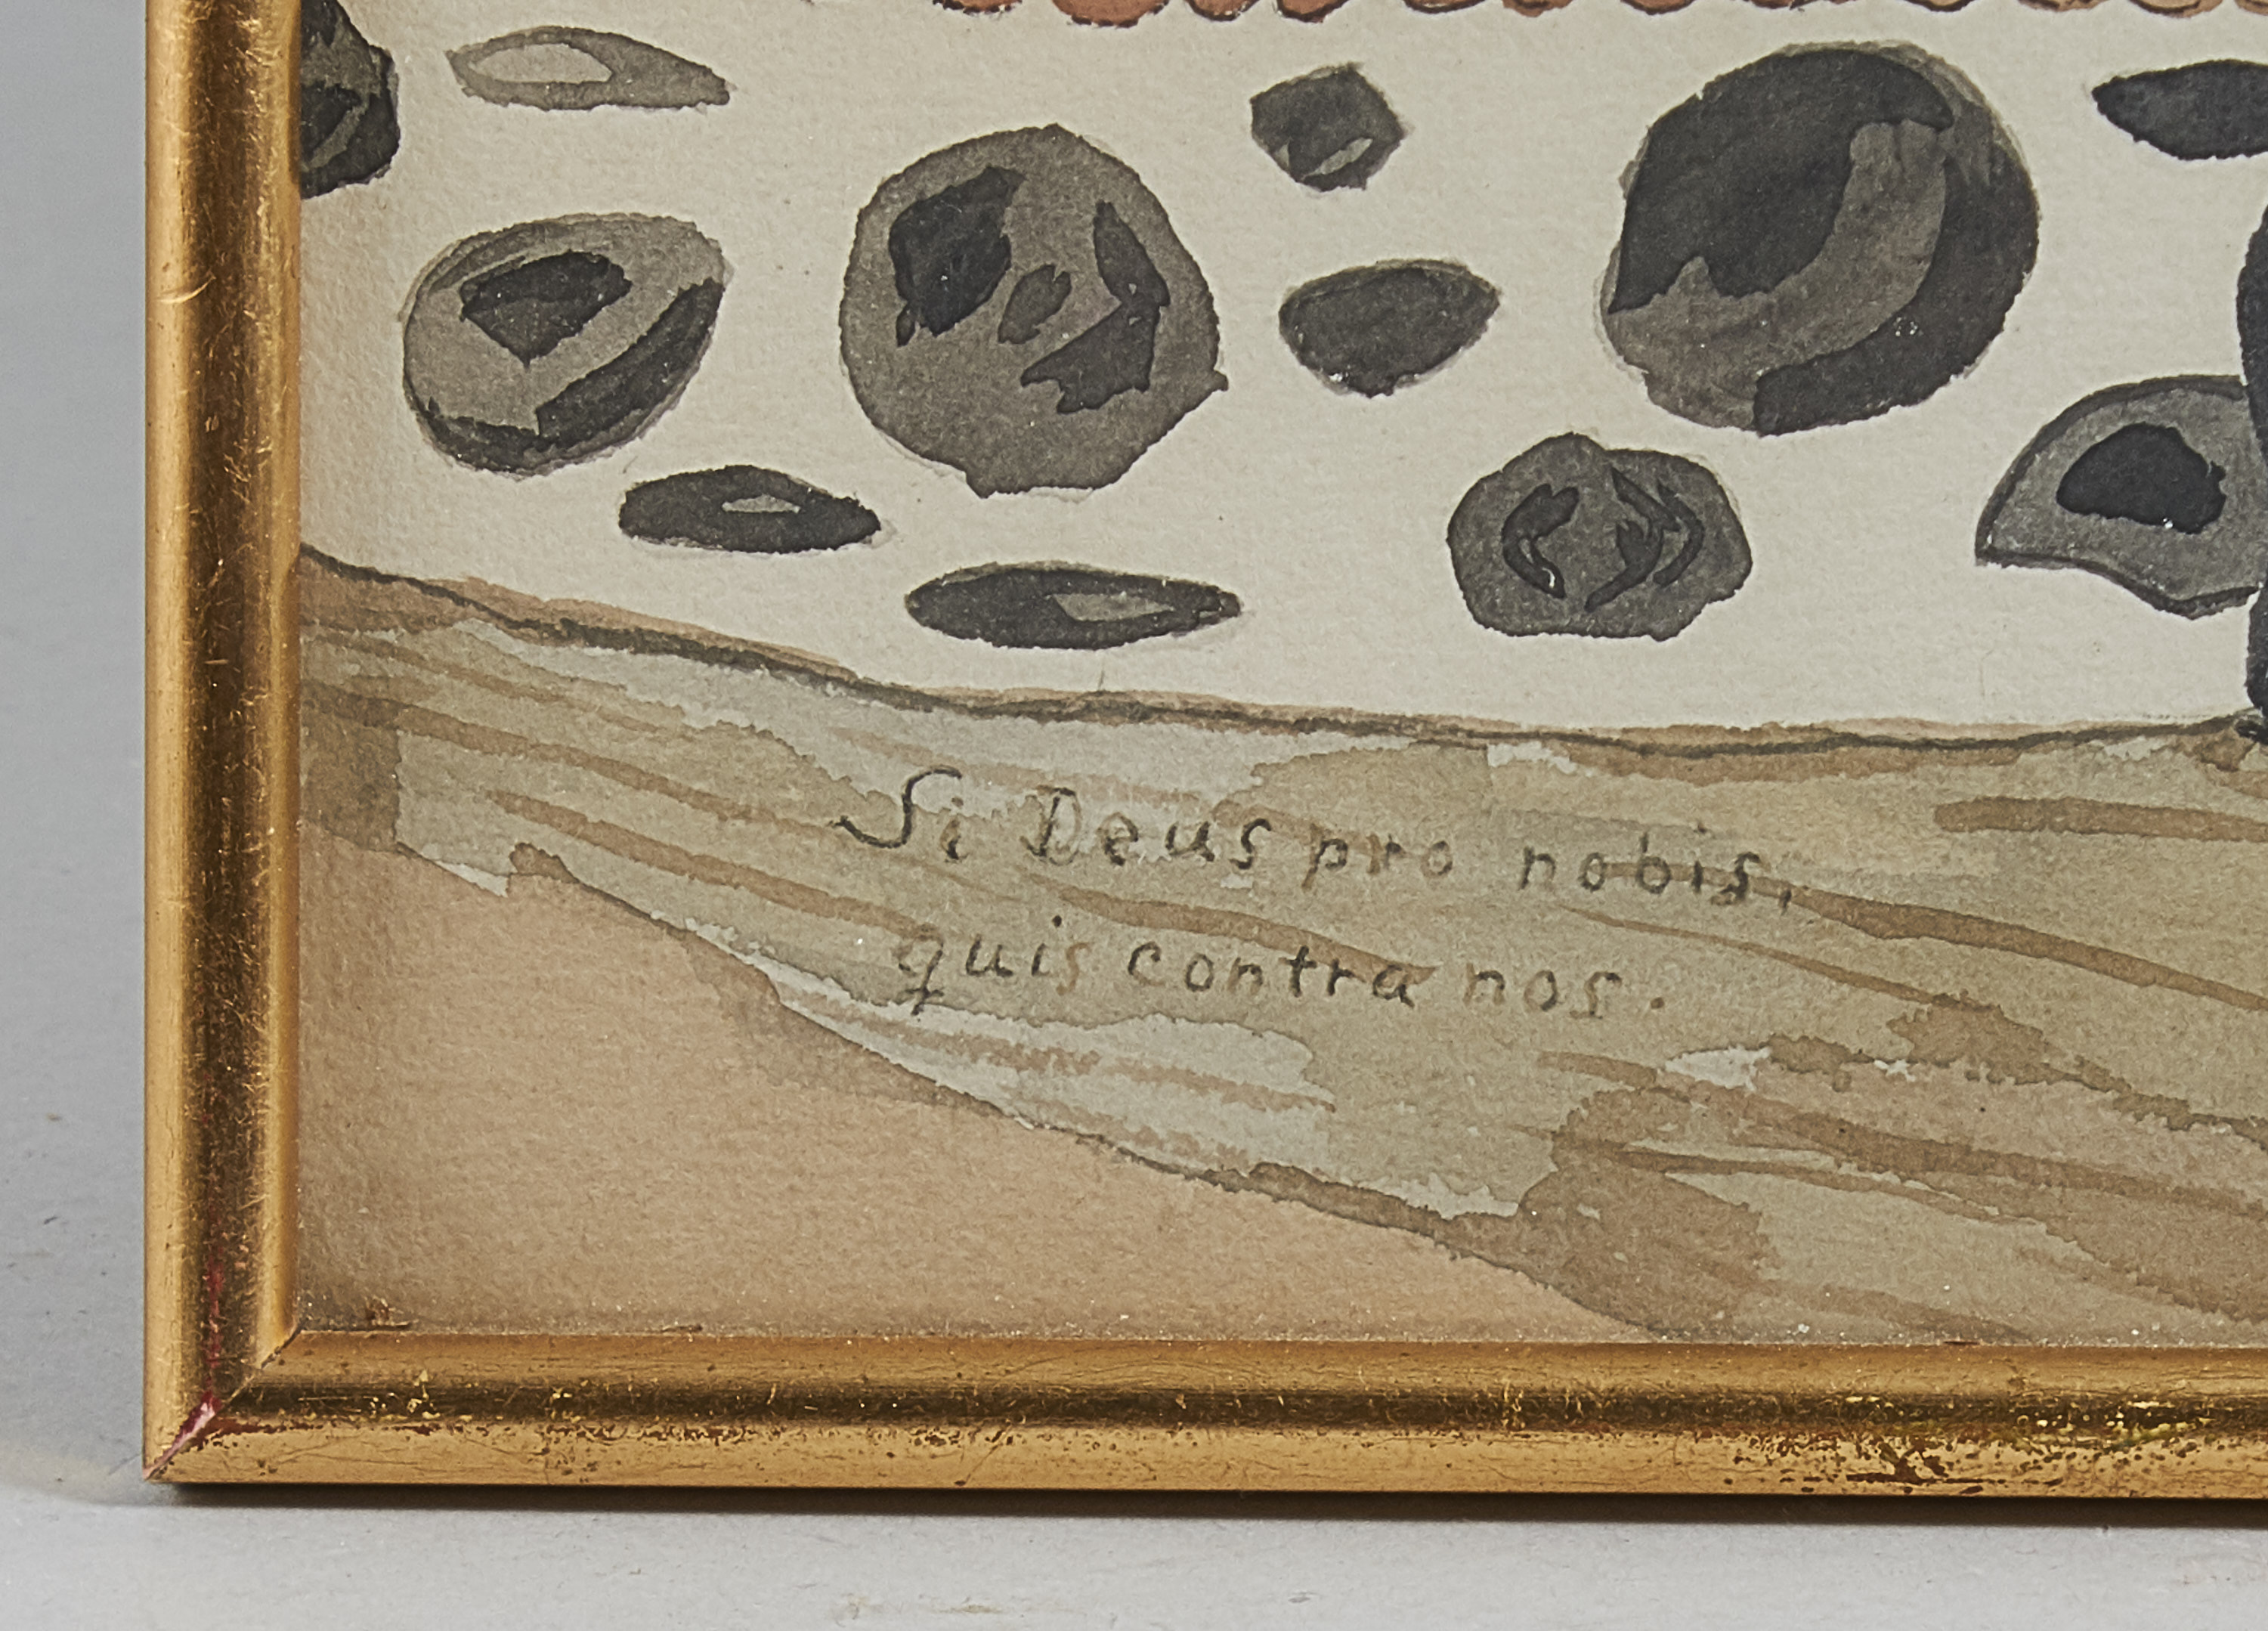 Si Deus pro nobis,
quis contra nos.